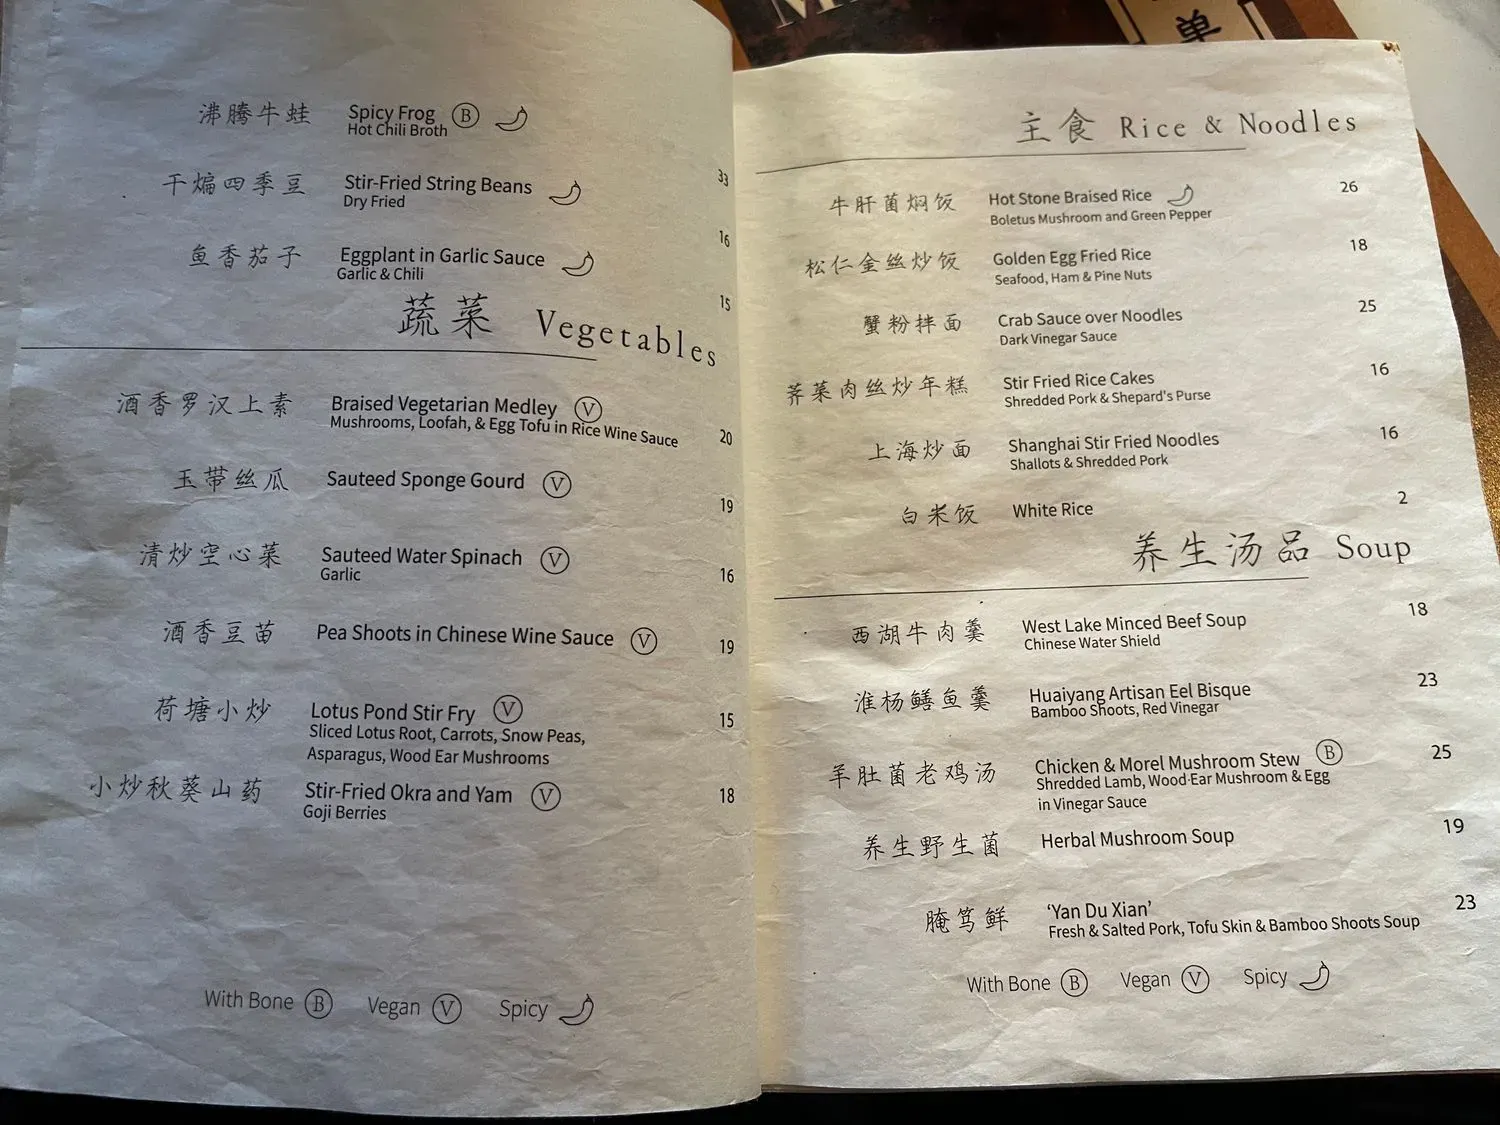 单
沸腾牛蛙 Spicy Frog B
Hot Chili Broth
33
干煸四季豆 Stir-Fried String Beans
Dry Fried
16
鱼香茄子 Eggplant in Garlic Sauce
Garlic & Chili
15
蔬菜 Vegetables
酒香罗汉上素 Braised Vegetarian Medley V
Mushrooms, Loofah, & Egg Tofu in Rice Wine Sauce
20
玉带丝瓜 Sauteed Sponge Gourd V
19
清炒空心菜 Sauteed Water Spinach V
Garlic
16
酒香豆苗 Pea Shoots in Chinese Wine Sauce V
19
荷塘小炒 Lotus Pond Stir Fry V
Sliced Lotus Root, Carrots, Snow Peas,
Asparagus, Wood Ear Mushrooms
15
小炒秋葵山药 Stir-Fried Okra and Yam V
Goji Berries
18
With Bone B Vegan V Spicy
主食 Rice & Noodles
牛肝菌焖饭 Hot Stone Braised Rice 26
Boletus Mushroom and Green Pepper
松仁金丝炒饭 Golden Egg Fried Rice 18
Seafood, Ham & Pine Nuts
蟹粉拌面 Crab Sauce over Noodles 25
Dark Vinegar Sauce
荠菜肉丝炒年糕 Stir Fried Rice Cakes 16
Shredded Pork & Shepard's Purse
上海炒面 Shanghai Stir Fried Noodles 16
Shallots & Shredded Pork
白米饭 White Rice 2
养生汤品 Soup
西湖牛肉羹 West Lake Minced Beef Soup 18
Chinese Water Shield
淮杨鳝鱼羹 Huaiyang Artisan Eel Bisque 23
Bamboo Shoots, Red Vinegar
羊肚菌老鸡汤 Chicken & Morel Mushroom Stew B 25
Shredded Lamb, Wood-Ear Mushroom & Egg
in Vinegar Sauce
养生野生菌 Herbal Mushroom Soup 19
腌笃鲜 ‘Yan Du Xian’ 23
Fresh & Salted Pork, Tofu Skin & Bamboo Shoots Soup
With Bone B Vegan V Spicy